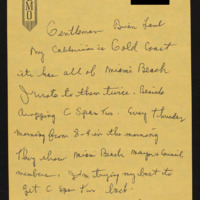 MO
Gentlemen Brian Lamb
My Cablevision is Gold Coast
its has all of Miami Beach
I wrote to them twice. Beside
dropping C Span Two. Every Thursday
morning from 8-9 in the morning
They show Miami Beach Mayor & Council
members. I am trying my best to
get C Span Two back.